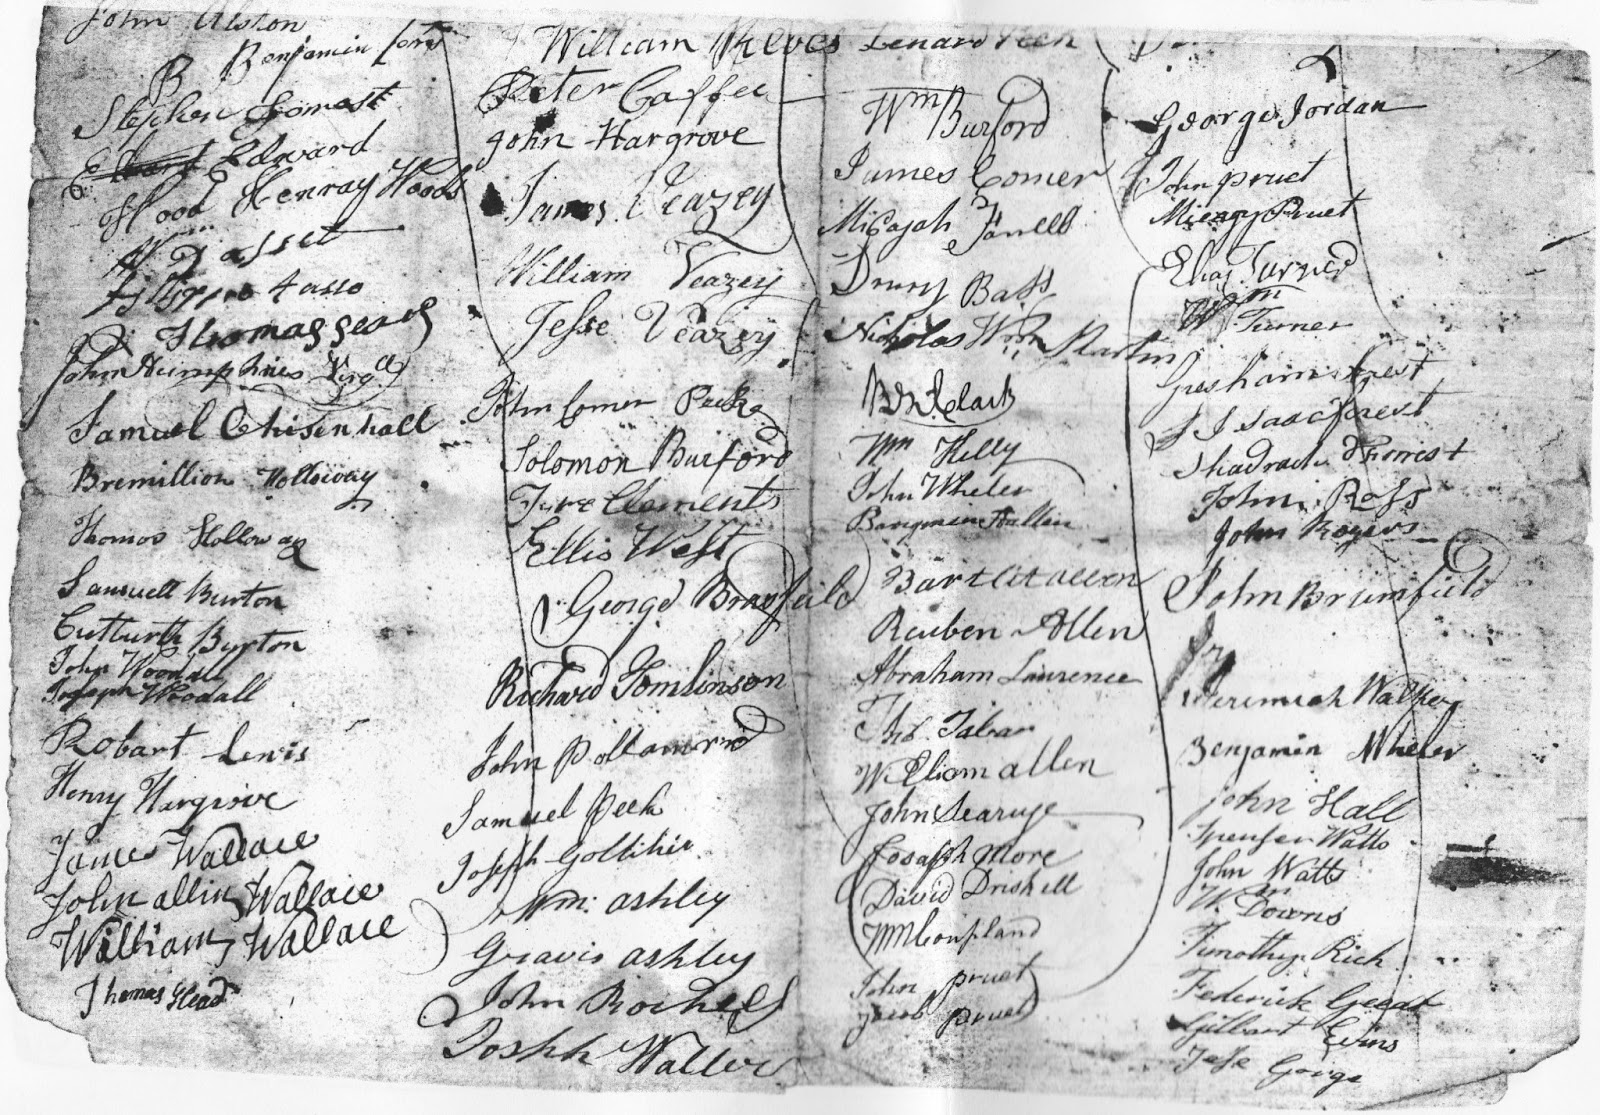 John Alston
B Benjamin
Stephen Fomest
Edward
Hood Henray Woods
Thomas
John Humphries Virga
Samuel Chisenhall
Bremillion Holloway
Thomas Holloway
Samuell Burton
Cutburth Burton
John Woodall
Joseph Woodall
Robart Lewis
Henry Hargrove
James Wallace
John allin Wallace
William Wallace
Thomas Head
William Reves
Peter Caffee
John Hargrove
James Veazey
William Veazey
Jesse Veazey
John Comer Peek
Solomon Burford
Clements
Ellis West
George Brasfeild
Richard Tomlinson
John Pollam
Samuel Peek
Joseph
Wm: ashley
Gravis ashley
John
Waller
Lenard Peek
Wm Burford
James Comer
Micajah Farrell
Drury Bass
Nicholas Wm Martin
Clark
Wm Kelly
John Wheler
Bangmin Hallin
Bartlit allen
Reuben Allen
Abraham Laurence
Tho. Tabar
William allen
John Searuge
Josaph More
David Driskell
Wm Coupland
John pruet
Jacob pruet
George Jordan
John pruet
Pruet
Elias Turner
Wm Turner
Gresham forest
Isaac forest
Shadrach Forrist
John Ross
John Rogers
John Brumfield
Jr
Jeremiah Walker
Benjamin Wheler
John Hall
Spenser Watts
John Watts
Wm Downs
Timothy Rich
Federick
Gilbart Evins
Jesse Gorge